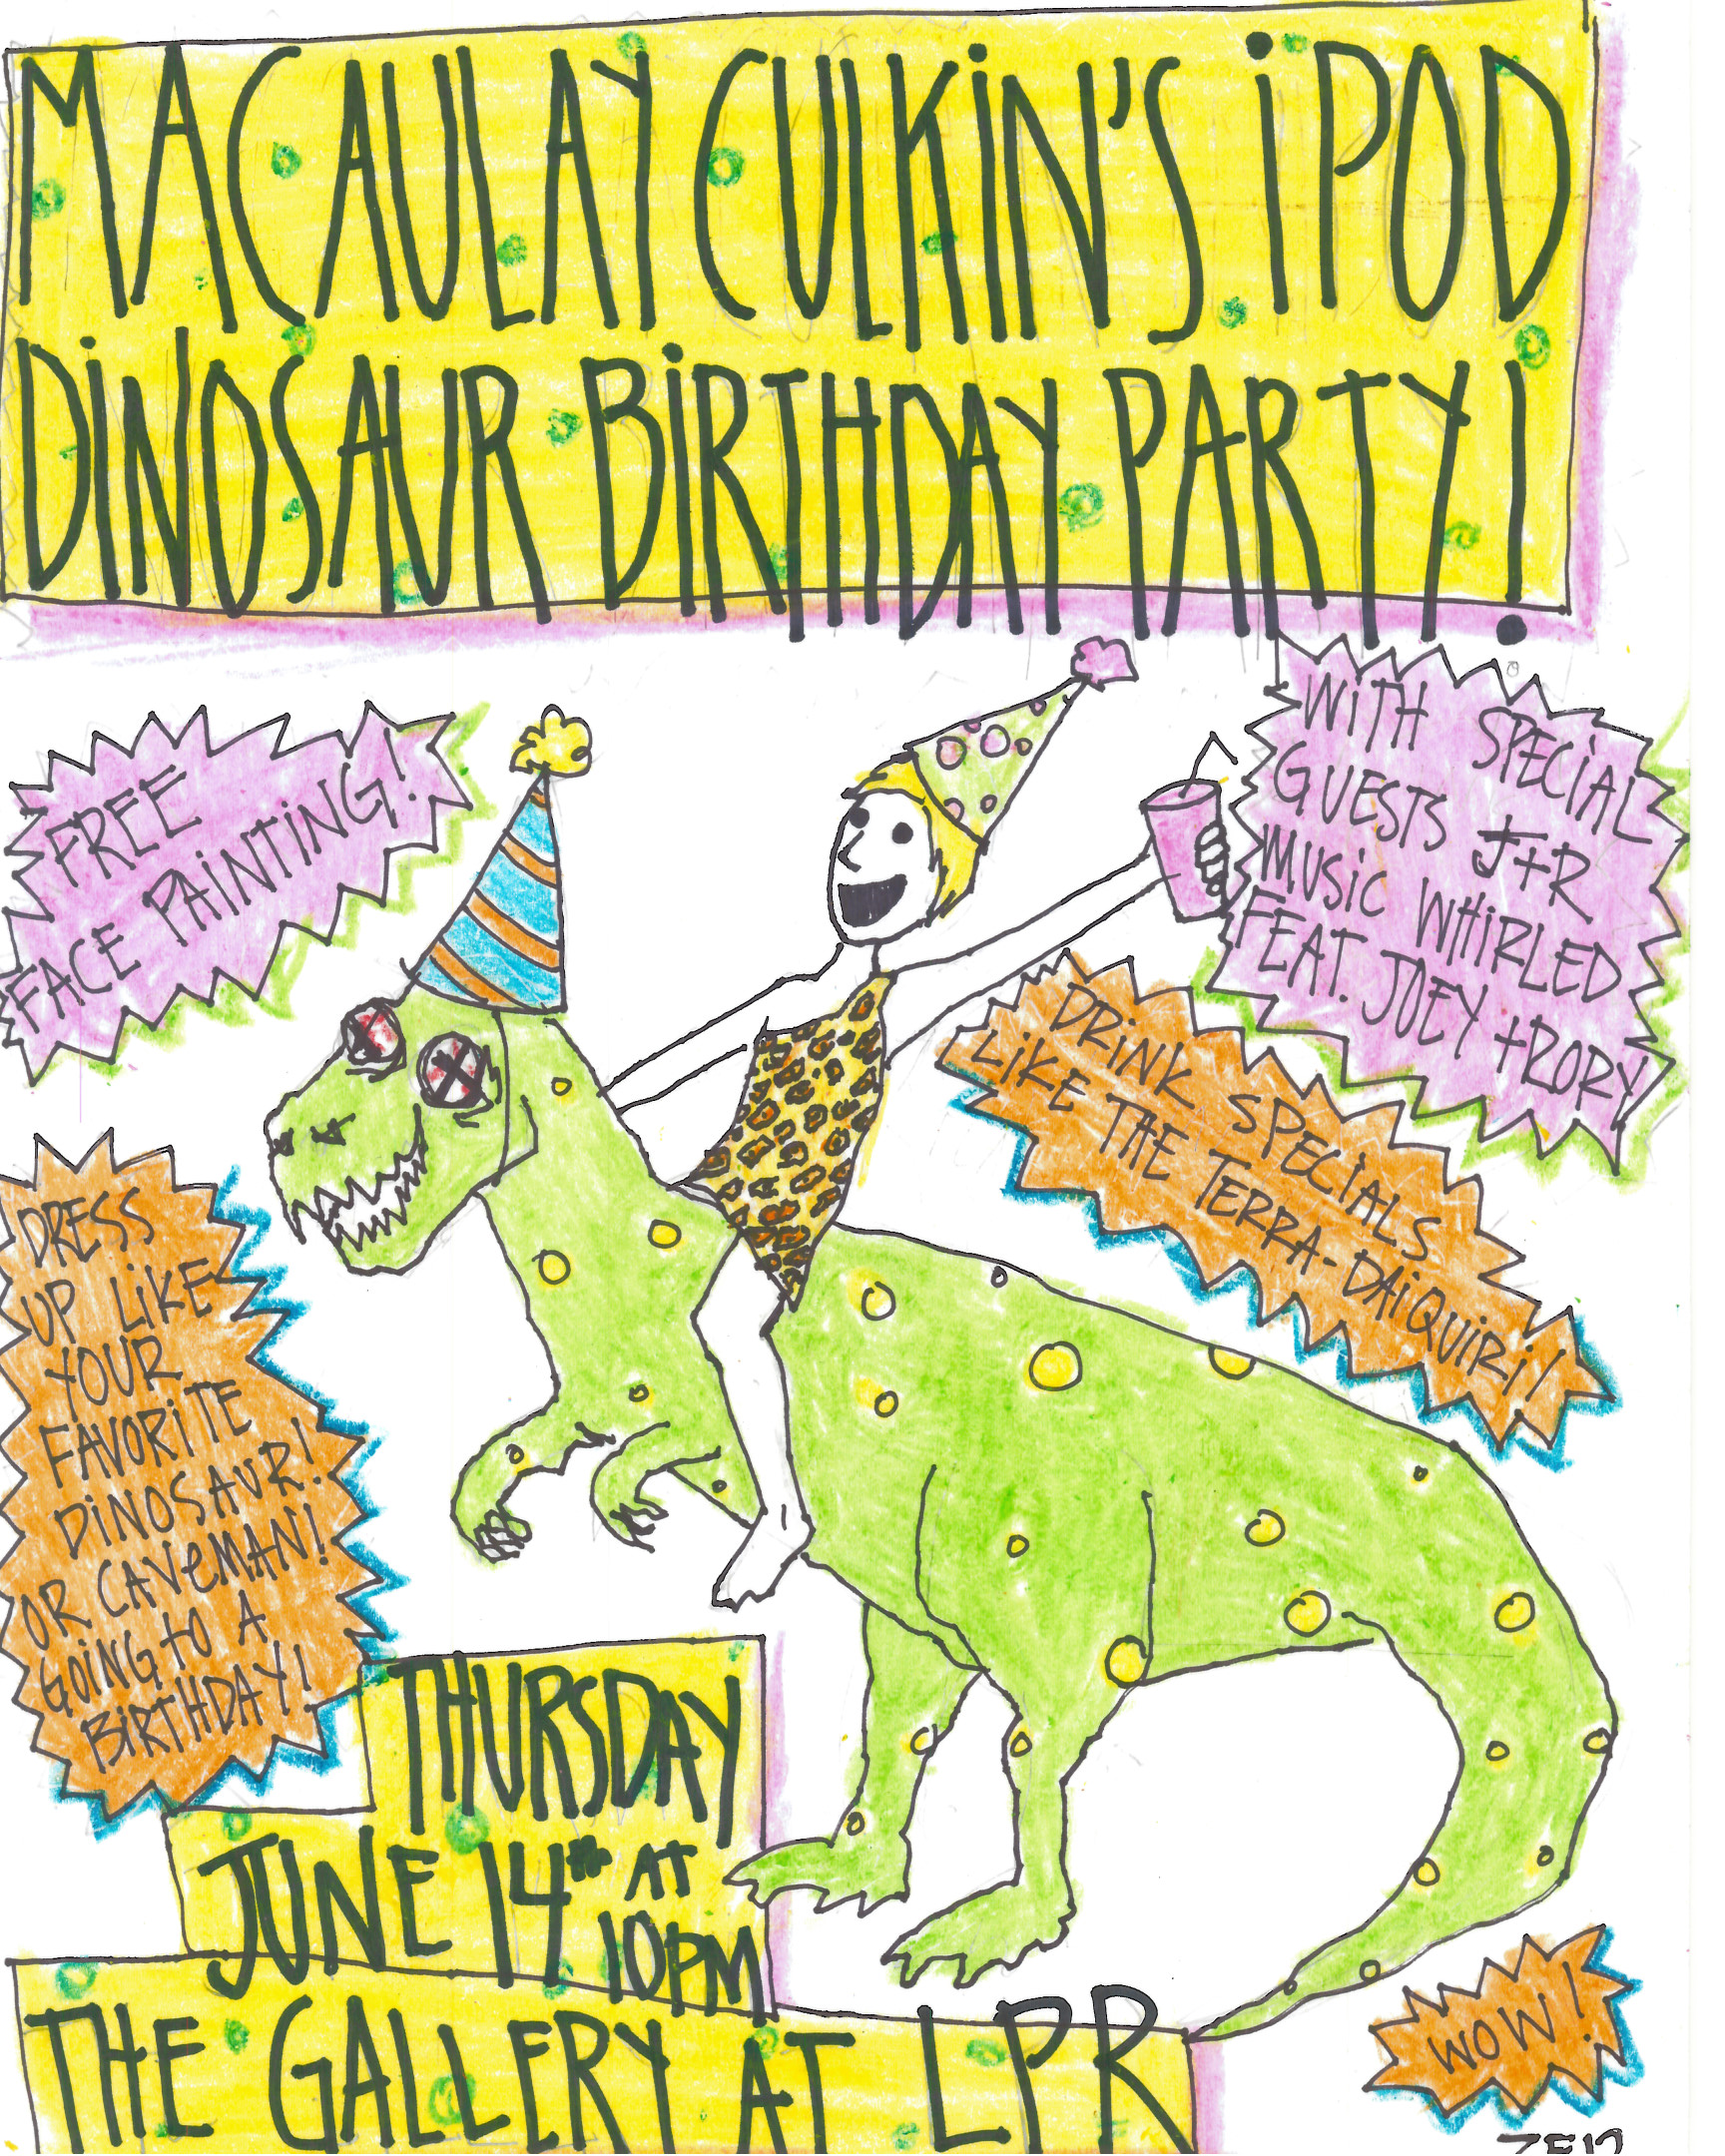 MACAULAY CULKIN'S iPOD
DINOSAUR BIRTHDAY PARTY!
FREE
FACE PAINTING!
WITH SPECIAL
GUESTS J+R
MUSIC WHIRLED
FEAT. JOEY + RORY
DRINK SPECIALS
LIKE THE TERRA-DAIQUIRI!
DRESS
UP LIKE
YOUR
FAVORITE
DINOSAUR!
OR CAVEMAN!
GOING TO A
BIRTHDAY!
THURSDAY
JUNE 14th AT
10PM
THE GALLERY AT LPR
WOW!